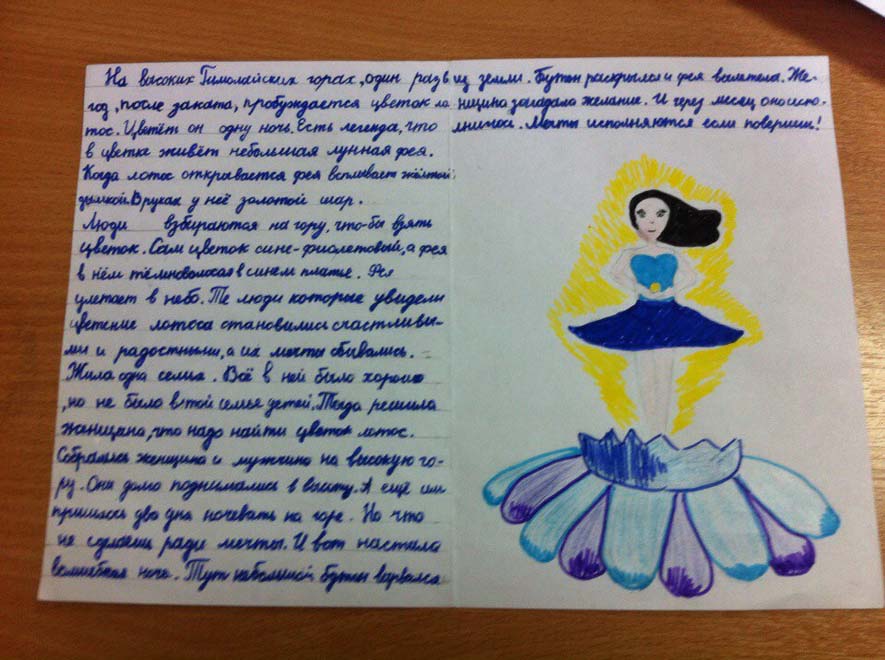 На высоких Гимолайских горах, один раз в
год, после заката, пробуждается цветок ло
тос. Цветёт он одну ночь. Есть легенда, что
в цветке живёт небольшая лунная фея.
Когда лотос открывается фея всплывает жёлтой
дымкой. В руках у неё золотой шар.
Люди взбираются на гору, что-бы взять
цветок. Сам цветок сине-фиолетовый, а фея
в нём тёмноволосая в синем платье. Фея
улетает в небо. Те люди которые увидели
цветение лотоса становились счастливы-
ми и радостными, а их мечты сбывались.
Жила одна семья. Всё в ней было хорошо
, но не было в той семье детей. Тогда решила
женщина, что надо найти цветок лотос.
Собрались женщина и мужчина на высокую го-
ру. Они долго поднимались в высоту. А ещё им
пришлось два дня ночевать на горе. Но что
не сделаешь ради мечты. И вот настала
волшебная ночь. Тут небольшой бутон вырвался
из земли. Бутон раскрылся и фея вылетела. Же-
нщина загадала желание. И через месяц оно испо-
лнилось. Мечты исполняются если поверишь!